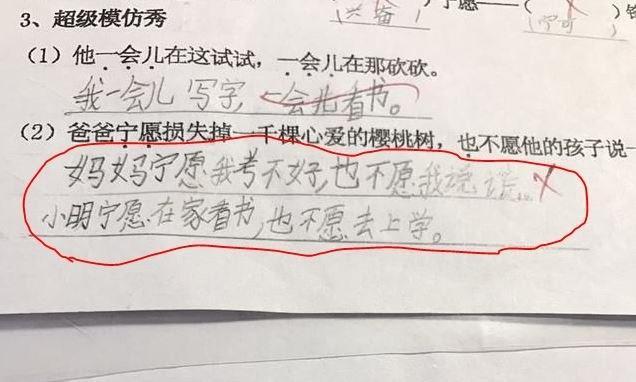 （兴奋）宁愿——（宁可）
3、超级模仿秀
（1）他一会儿在这试试，一会儿在那砍砍。
我一会儿写字，一会儿看书。
（2）爸爸宁愿损失掉一千棵心爱的樱桃树，也不愿他的孩子说一
妈妈宁愿我考不好，也不愿我说谎。
小明宁愿在家看书，也不愿去上学。